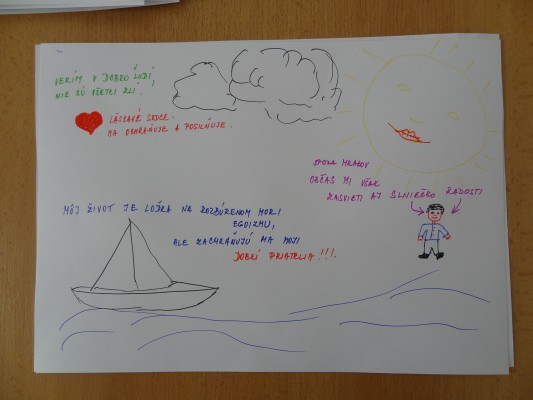 VERÍM V DOBRO ĽUDÍ
NIE SÚ VŠETCI ZLÍ!
LÁSKAVÉ SRDCE
MA OCHRAŇUJE A POSILŇUJE.
SPOZA MRAKOV
OBČAS MI VŠAK
ZASVIETI AJ SLNIEČKO RADOSTI
MÔJ ŽIVOT JE LOĎKA NA ROZBÚRENOM MORI
EGOIZMU,
ALE ZACHRAŇUJÚ MA MOJI
DOBRÍ PRIATELIA!!!.